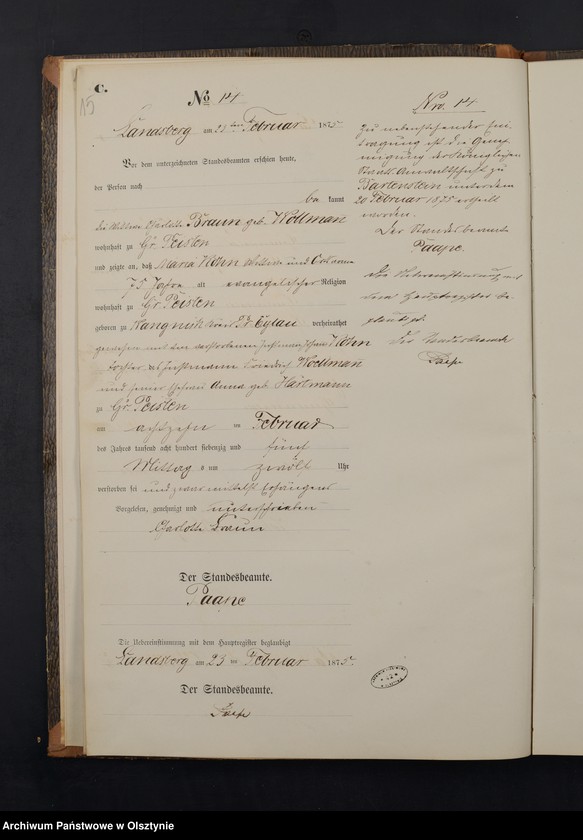 C.
15
No 14
Landsberg am 23ten Februar 1875.
Vor dem unterzeichneten Standesbeamten erschien heute,
der Person nach
be kannt
die Wittwe Charlotte Braun geb. Wollmann
wohnhaft zu Gr. Peisten
und zeigte an, daß Maria Höhn Wittwe und Ortsarme
75 Jahre alt evangelischer Religion
wohnhaft zu Gr. Peisten
geboren zu Kreis Pr. Eylau verheirathet
gewesen mit dem verstorbenen Höhn
Tochter des Instmann Friedrich Wollmann
und seiner Ehefrau Anna geb. Hartmann
zu Gr. Peisten
am achtzehn ten Februar
des Jahres tausend acht hundert siebenzig und fünf
Mittag s um zwölf Uhr
verstorben sei und zwar mittelst Erhängens
Vorgelesen, genehmigt und unterschrieben
Charlotte Braun
Der Standesbeamte.
Paape
Die Uebereinstimmung mit dem Hauptregister beglaubigt
Landsberg am 23 ten Februar 1875.
Der Standesbeamte.
Paape
Nro. 14
Zu nebenstehender Ein-
tragung ist die Geneh-
migung der Königlichen
Staats Anwaltschaft zu
Bartenstein unter dem
20 Februar 1875 ertheilt
worden.
Der Standesbeamte
Paape.
Die Uebereinstimmung mit
dem Hauptregister be-
glaubigt.
Der Standesbeamte
Paape
Archiwum Państwowe w Olsztynie